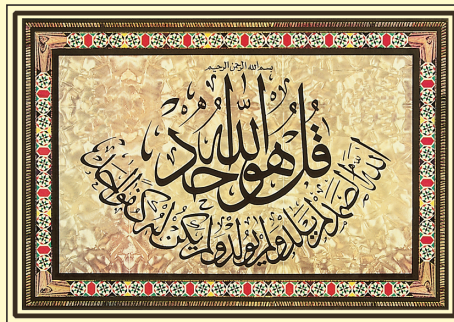 بسم الله الرحمن الرحيم
قل هو الله أحد
الله الصمد لم يلد ولم يولد ولم يكن له كفوا أحد